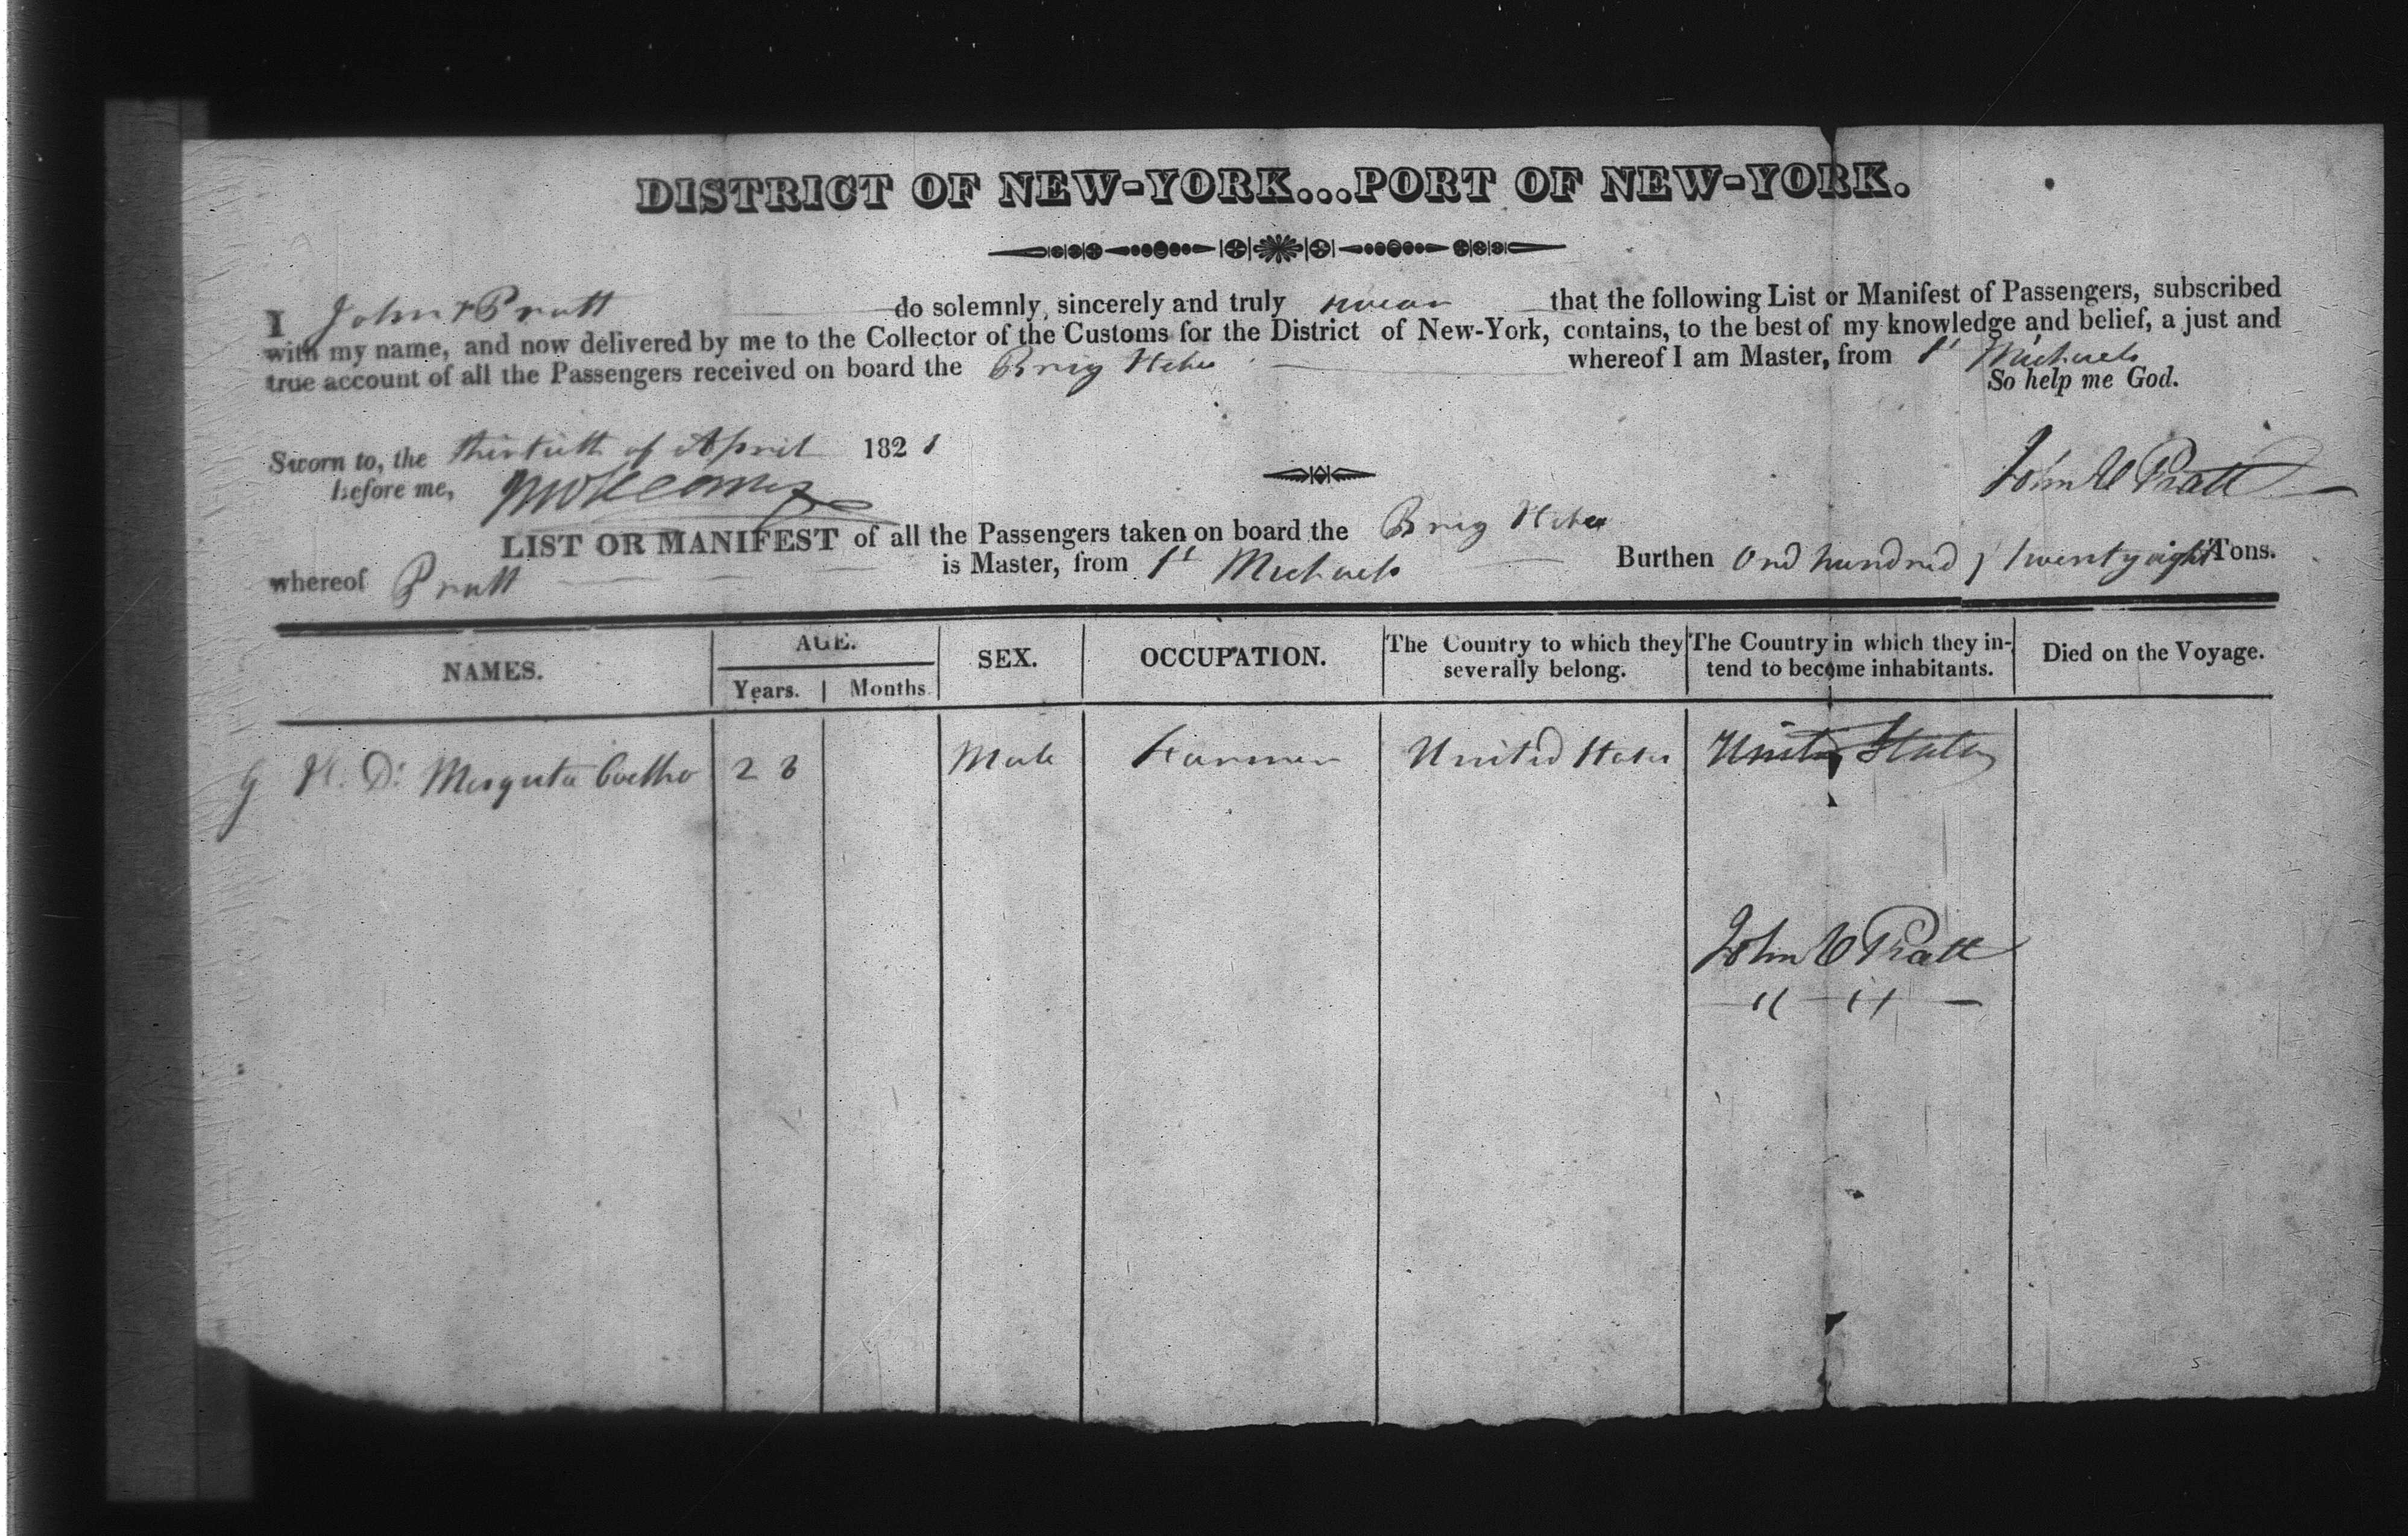 DISTRICT OF NEW-YORK...PORT OF NEW-YORK.
I John Pratt do solemnly, sincerely and truly swear that the following List or Manifest of Passengers, subscribed
with my name, and now delivered by me to the Collector of the Customs for the District of New-York, contains, to the best of my knowledge and belief, a just and
true account of all the Passengers received on board the Brig Hebe whereof I am Master, from St Michaels
So help me God.
Sworn to, the thirtieth of April 1821
before me,
John C Pratt
LIST OR MANIFEST of all the Passengers taken on board the Brig Hebe
whereof Pratt is Master, from St Michaels Burthen One hundred & twenty eight Tons.
NAMES. AGE. SEX. OCCUPATION. The Country to which they severally belong. The Country in which they intend to become inhabitants. Died on the Voyage.
Years. Months.
D: Mesquita Coelho 28 Male Farmer United States United States
John C Pratt